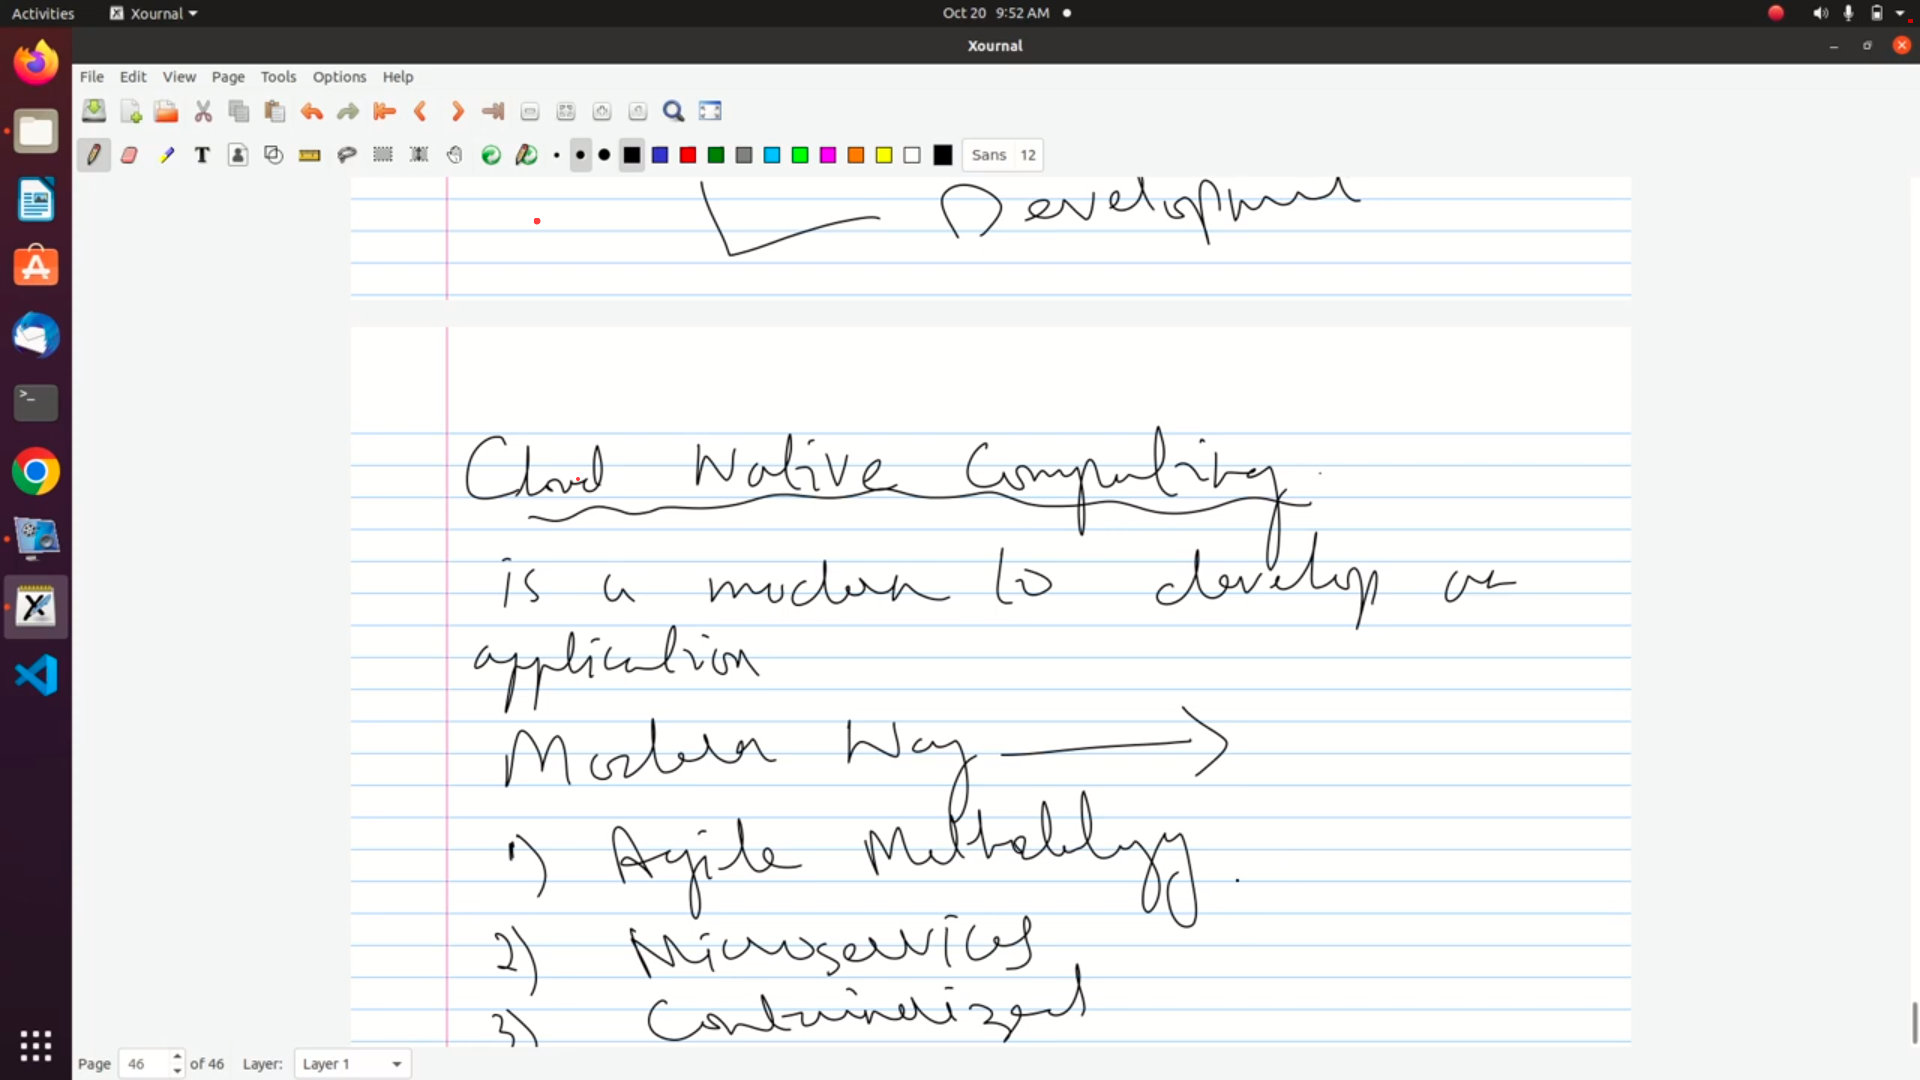 Activities Xournal Oct 20 9:52 AM
Xournal
File Edit View Page Tools Options Help
T Sans 12
Development
Cloud Native Computing
is a modern to develop an
application
Modern Way
1) Agile Methodology.
2) Microservices
3) Containerized
Page 46 of 46 Layer: Layer 1